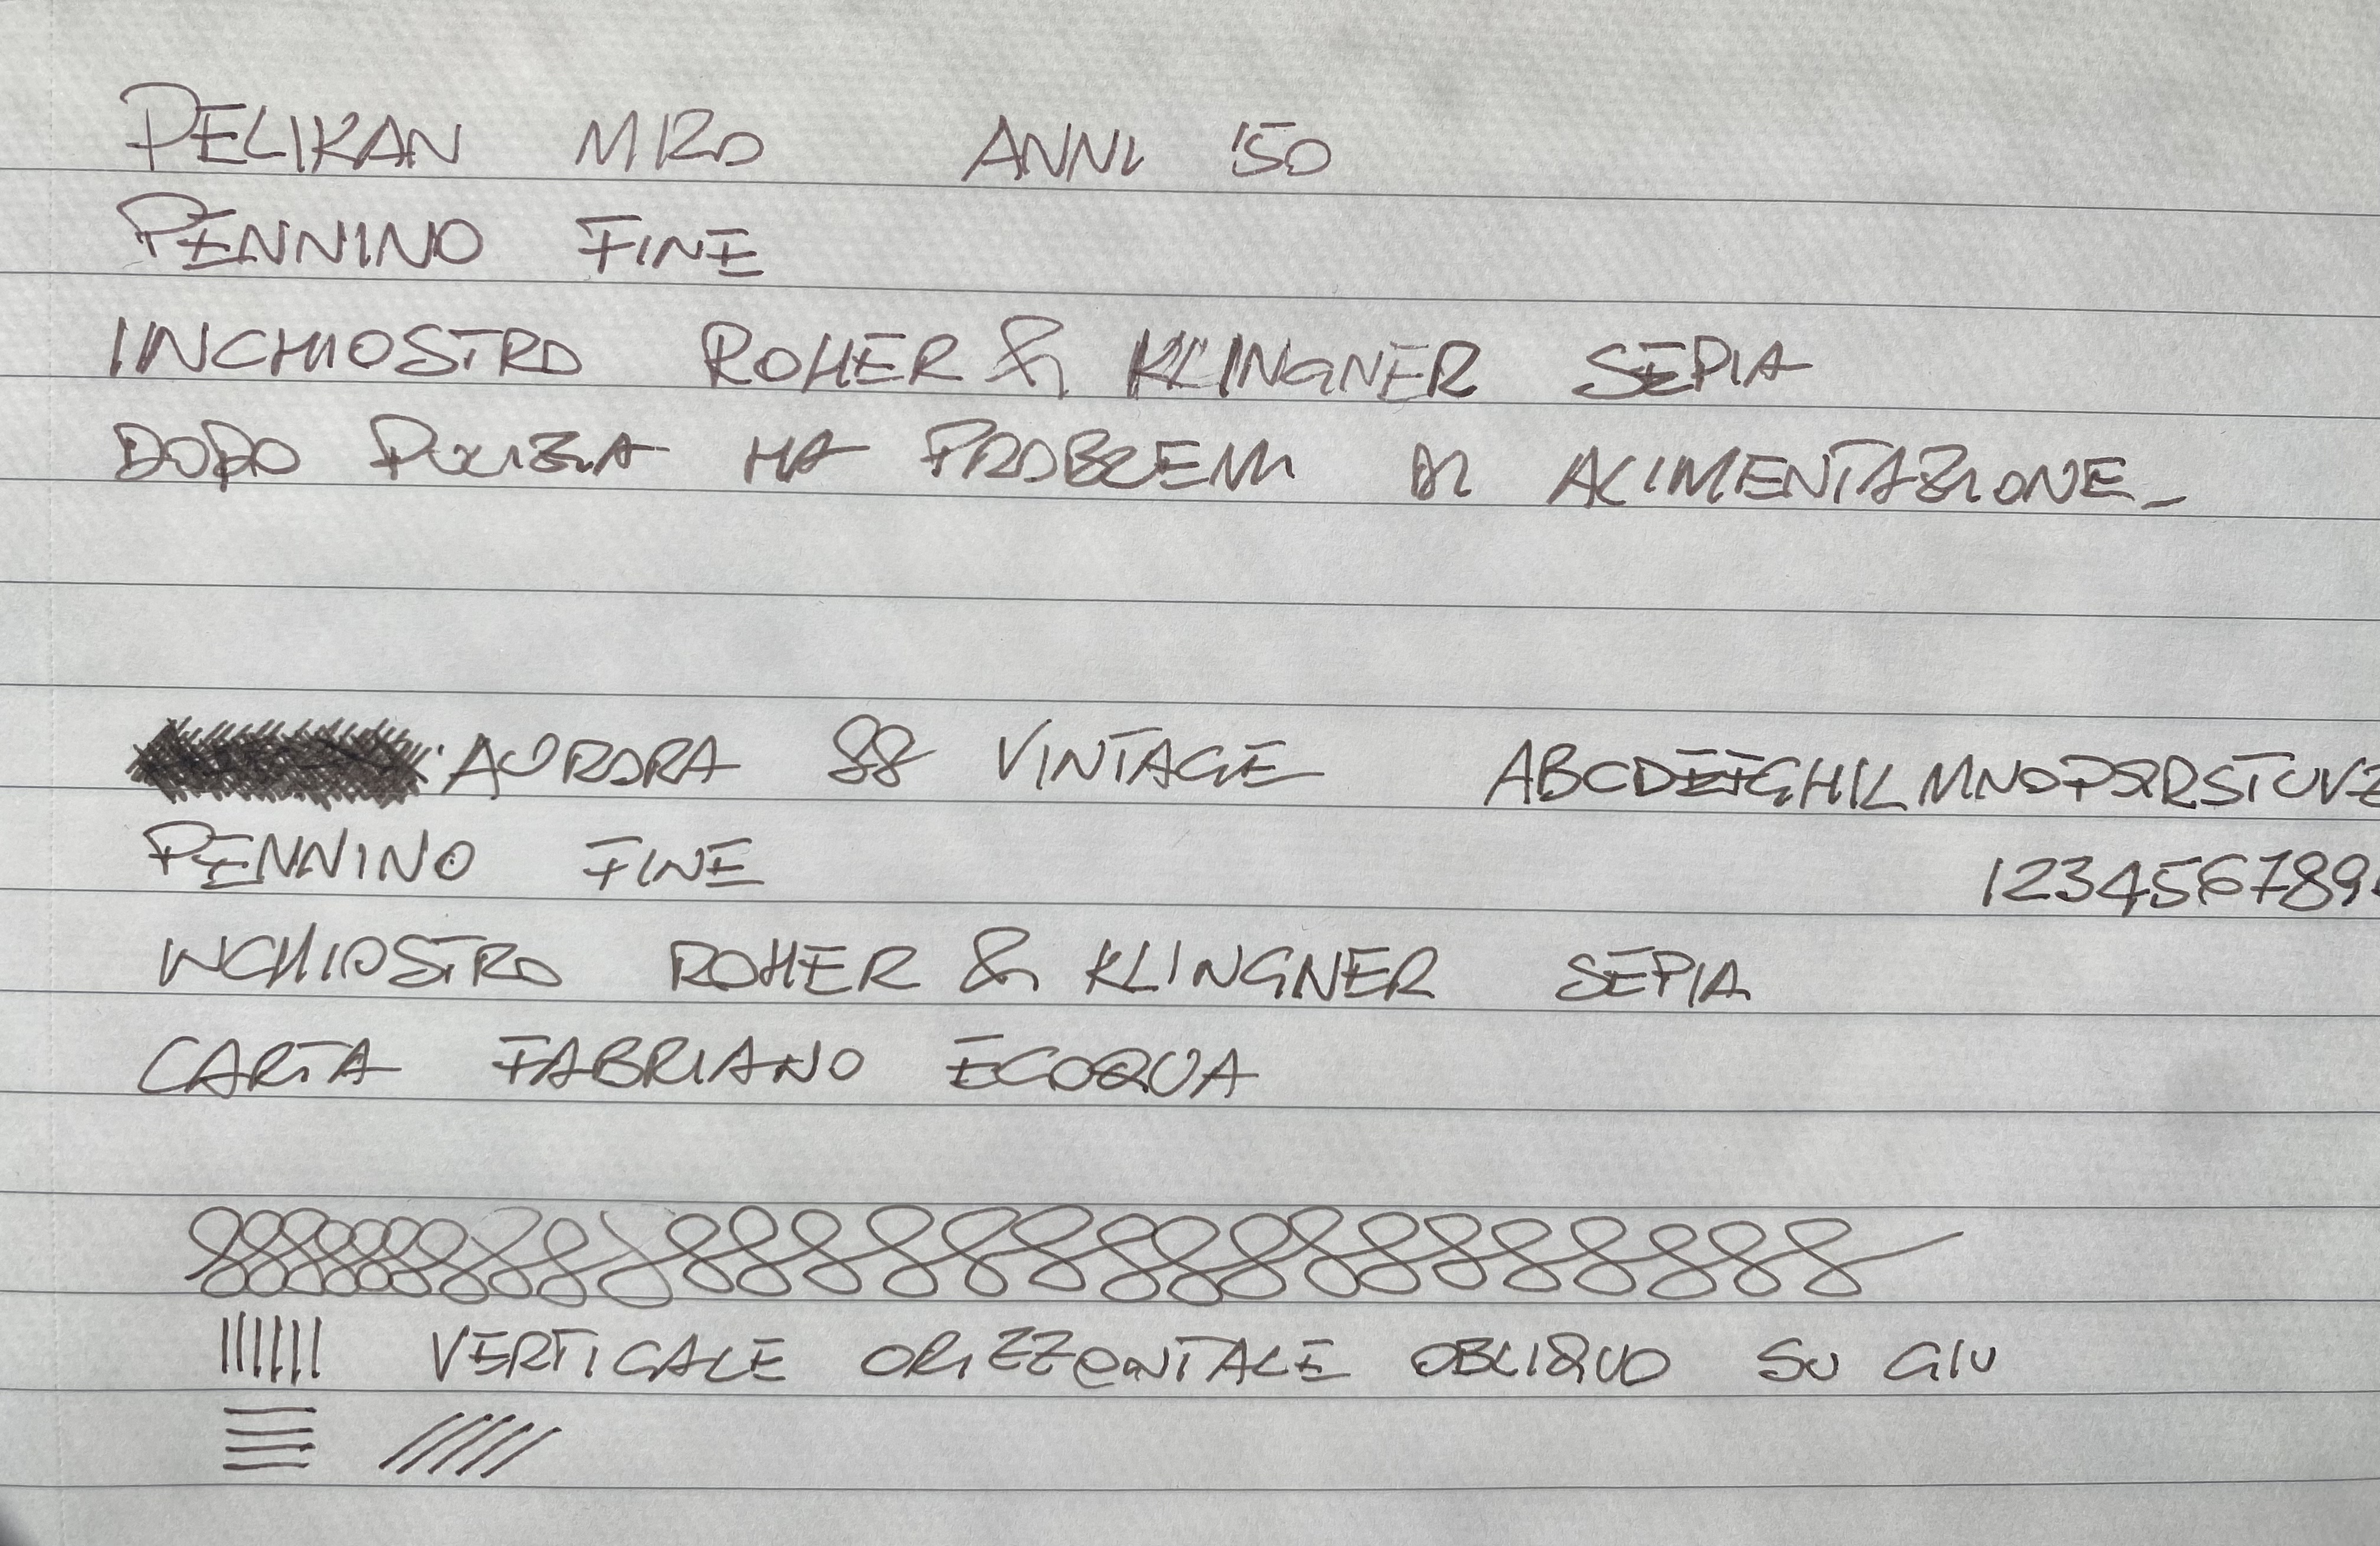 PELIKAN M120 ANNI '50
PENNINO FINE
INCHIOSTRO ROHER & KLINGNER SEPIA
DOPO PULIZIA HA PROBLEMI DI ALIMENTAZIONE_
AURORA 88 VINTAGE ABCDEFGHILMNOPQRSTUVZ
PENNINO FINE 123456789
INCHIOSTRO ROHER & KLINGNER SEPIA
CARTA FABRIANO ECOQUA
VERTICALE ORIZZONTALE OBLIQUO SU GIU